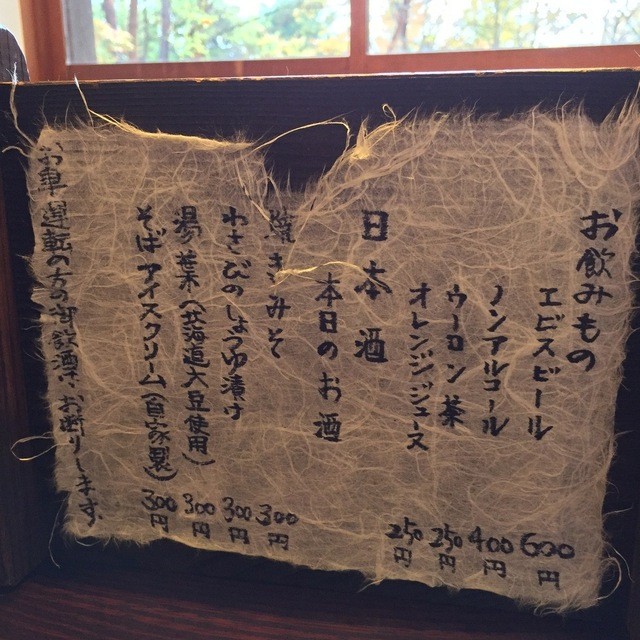 お飲みもの
エビスビール 600円
ノンアルコール 400円
ウーロン茶 250円
オレンジジュース 250円
日本酒
本日のお酒
焼きみそ 300円
わさびのしょうゆ漬け 300円
湯葉（北海道大豆使用） 300円
そばアイスクリーム（自家製） 300円
お車運転の方の御飲酒はお断りします。